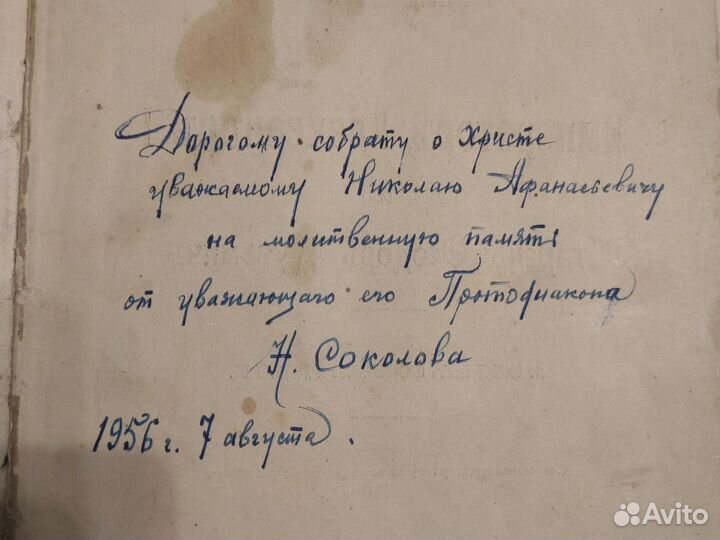 Дорогому собрату о Христе
уважаемому Николаю Афанасьевичу
на молитвенную память
от уважающаго его Протодиакона
Н. Соколова
1956 г. 7 августа.
Avito